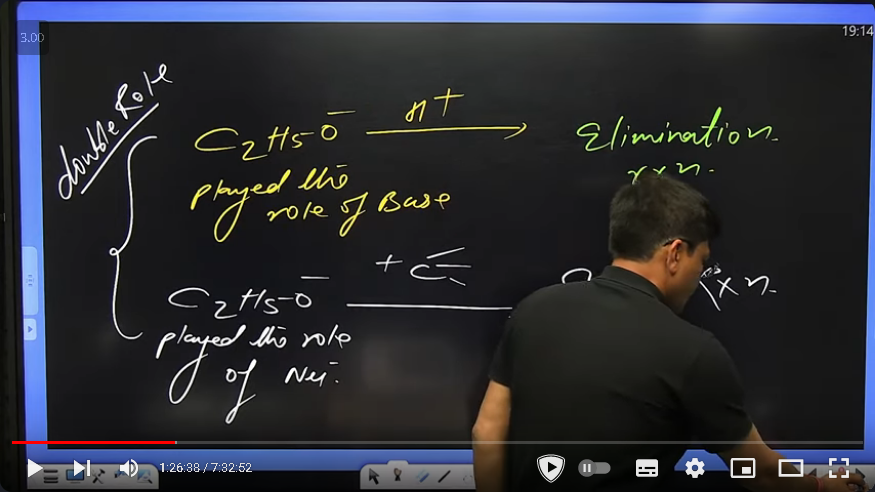 3.00
19:14
double Role
C2H5-O⁻
H+
Elimination.
rxn.
played the
role of Base
+ C
C2H5-O⁻
rxn.
played the role
of Nu⁻.
1:26:38 / 7:32:52